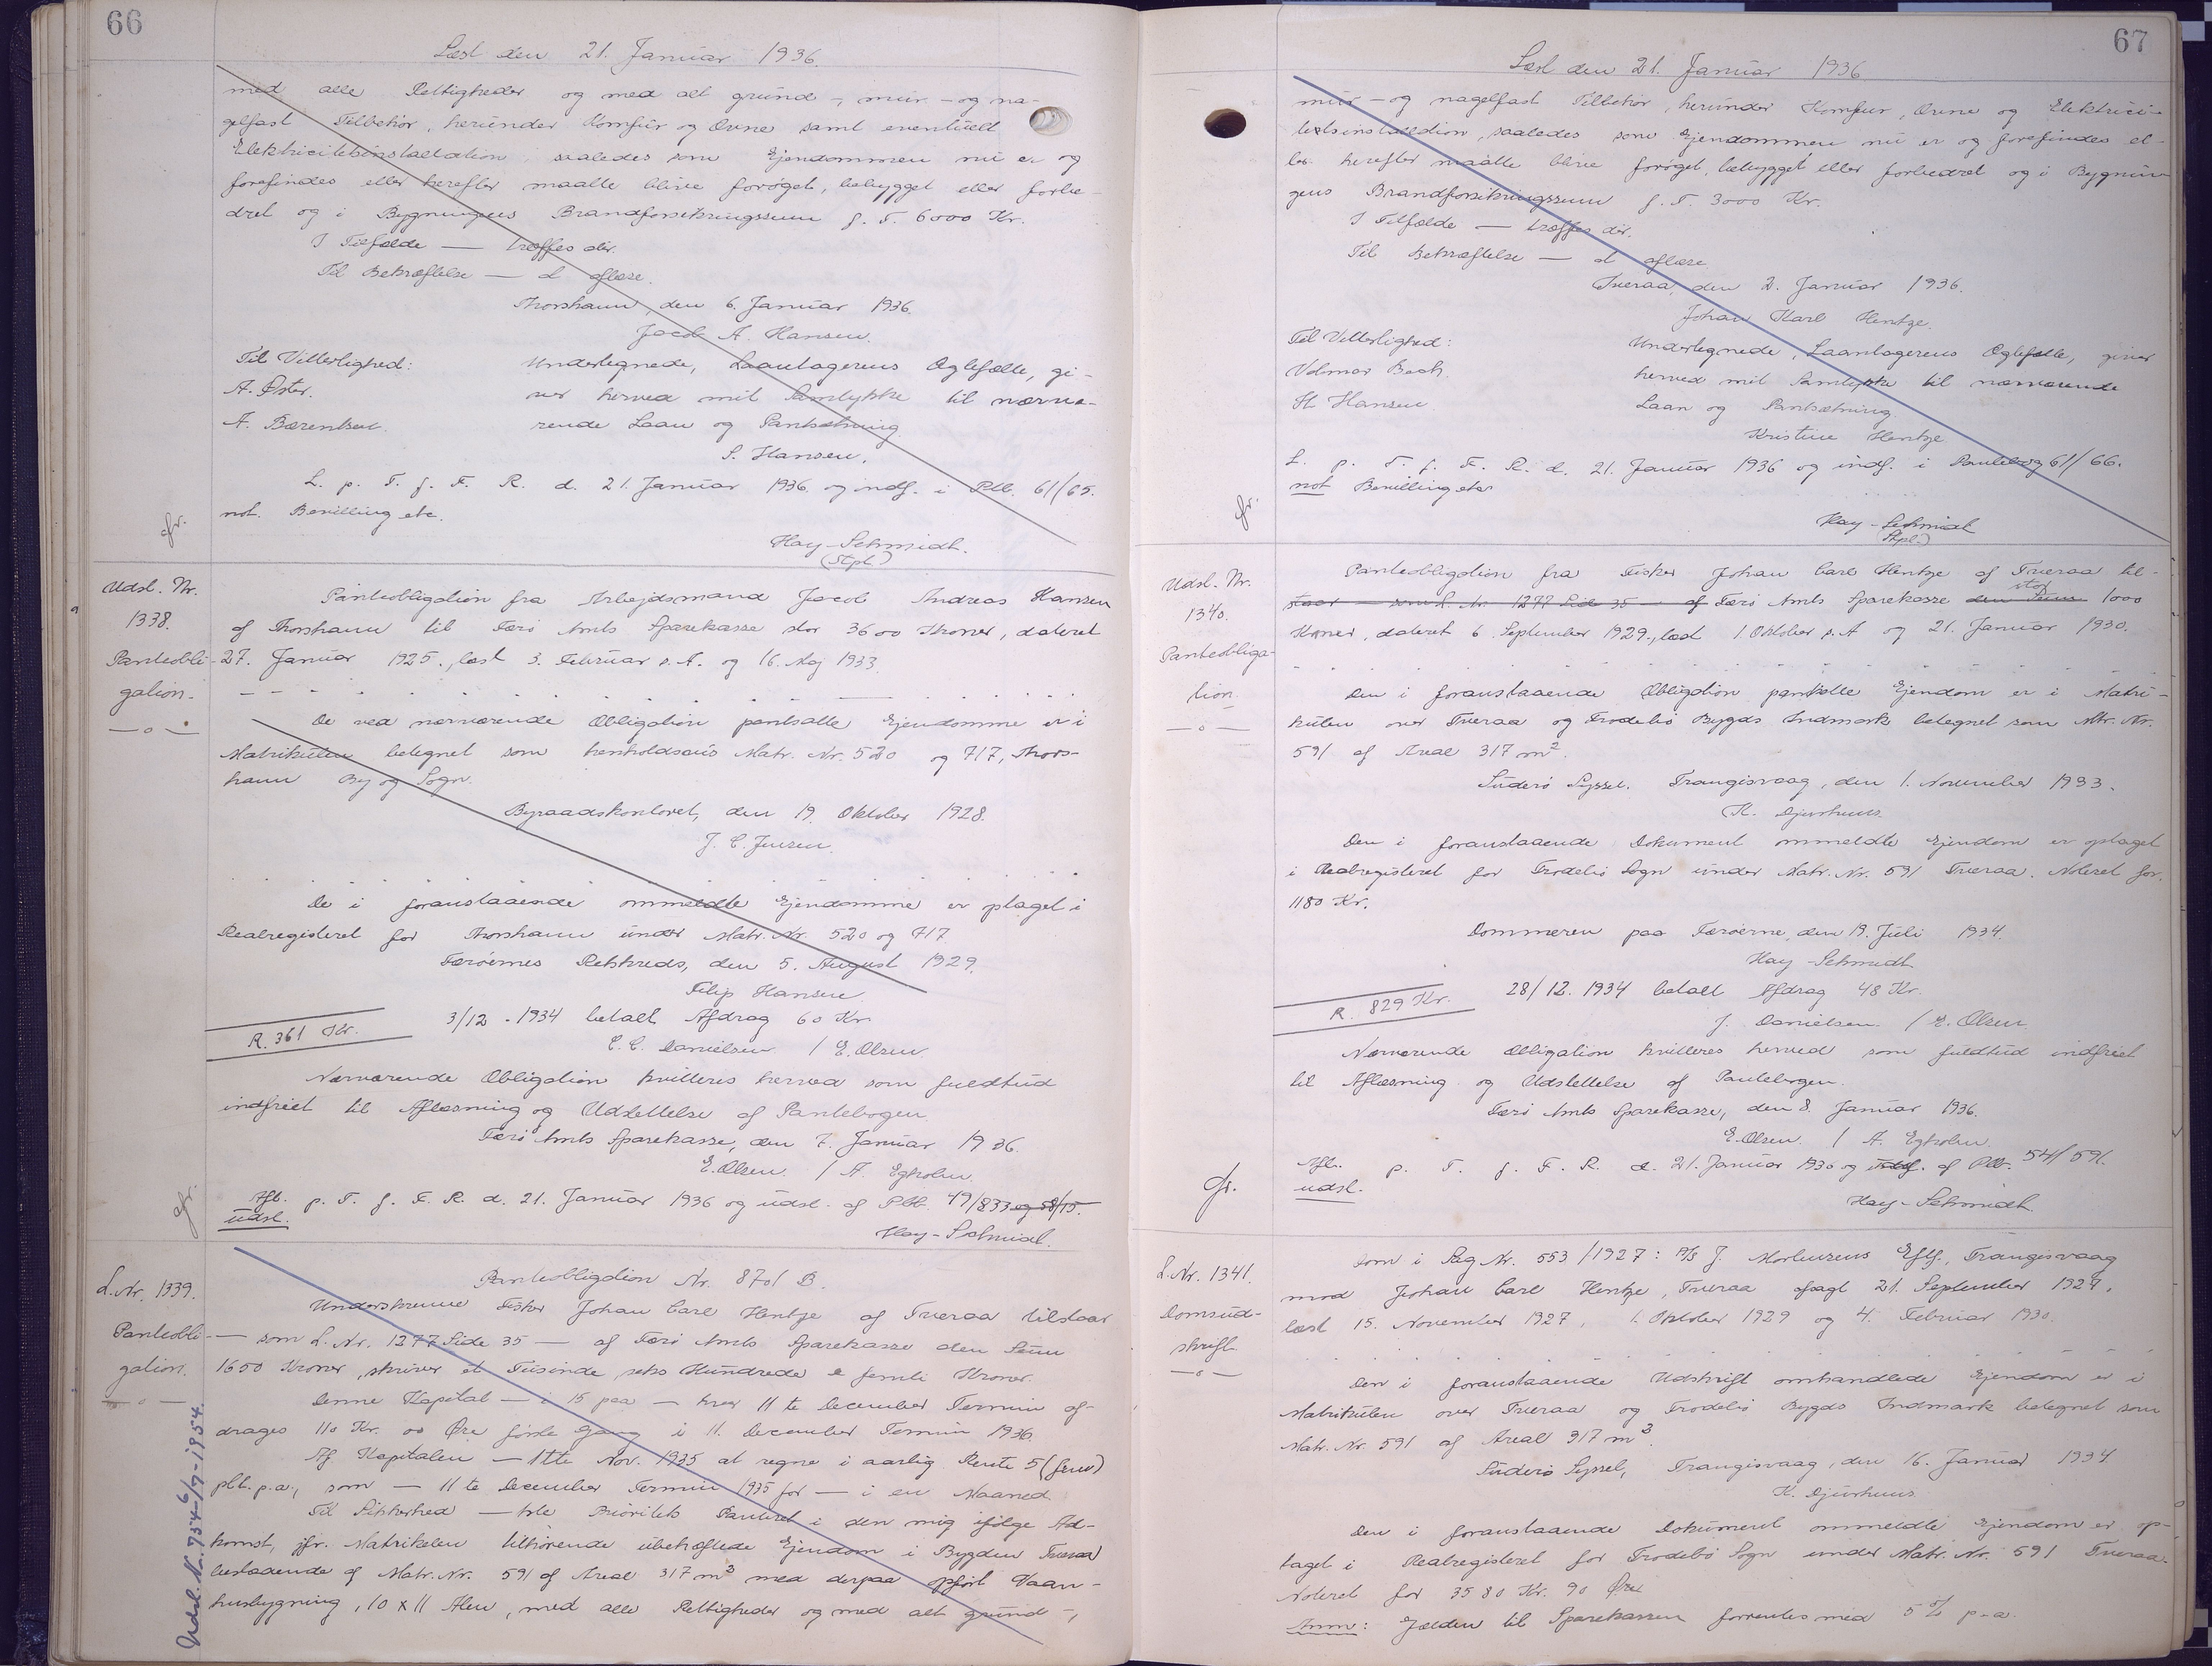 66
Læst den 21. Januar 1936.
med alle Rettigheder og med alt grund-, mur- og na-
gelfast Tilbehör, herunder Komfur og Ovne samt eventuelt
Elektricitetsinstallation saaledes som Ejendommen nu er og
forefindes eller herefter maatte blive forøget, bebygget eller forbe-
dret og i Bygningens Brandforsikringssum f. T. 6000 Kr.
I Tilfælde — træffes dér.
Til Bekræftelse — at aflæse.
Thorshavn, den 6. Januar 1936.
Jacob A. Hansen.
Til Vitterlighed:
A. Øster.
A. Bærentsen.
Undertegnede, Laantagerens Ægtefælle, gi-
ver herved mit Samtykke til nærvæ-
rende Laan og Pantsætning.
S. Hansen.
L. p. T. f. F. R. d. 21. Januar 1936 og indf. i Ptb. 61/65.
not. Bevilling etc.
Hay-Schmidt.
(Stpl.)
Udsl. Nr.
1338.
Panteobli-
gation.
—o—
Panteobligation fra Arbejdsmand Jacob Andreas Hansen
af Thorshavn til Færø Amts Sparekasse stor 3600 Kroner, dateret
27. Januar 1925., læst 3. Februar s. A. og 16. Maj 1933.
De ved nærværende Obligation pantsatte Ejendomme er i
Matrikulen betegnet som henholdsvis Matr. Nr. 520 og 717, Thors-
havn By og Sogn.
Byraadskontoret, den 19. Oktober 1928.
J. C. Jensen.
De i foranstaaende ommeldte Ejendomme er optaget i
Realregisteret for Thorshavn under Matr. Nr. 520 og 717
Færöernes Retskreds, den 5. August 1929.
Filip Hansen
R. 361 Kr.
3/12 - 1934 betalt Afdrag 60 Kr.
C. C. Danielsen / E. Olsen.
Nærværende Obligation kvitteres herved som fuldtud
indfriet til Aflæsning og Udslettelse af Pantebogen
Færø Amts Sparekasse, den 7. Januar 1936.
E. Olsen / A. Egholm
Afl. p. T. f. F. R. d. 21. Januar 1936 og udsl. af Ptb. 49/833 og 58/15.
udsl.
Hay-Schmidt.
L. Nr. 1339.
Panteobli-
gation.
—o—
Udsl. Nr. 754 - 6/7 - 1954.
Panteobligation Nr. 8701 B.
Underskrevne Fisker Johan Carl Hentze af Tveraa tilstaar
— som L. Nr. 1277 Side 35 — af Færø Amts Sparekasse den Sum
1650 Kroner, skriver et Tusinde seks Hundrede & femti Kroner.
Denne Kapital — i 15 paa — hver 11 te December Termin af-
drages 110 Kr. 00 Øre første Gang i 11. December Termin 1936.
Af Kapitalen — 11te Nov. 1935 at regne i aarlig Rente 5 (fem)
pCt. p.a., som — 11 te December Termin 1935 for — i en Maaned.
Til Sikkerhed — 1ste Prioritets Panteret i den mig ifølge Ad-
komst, jfr. Matrikelen tilhörende ubehæftede Ejendom i Bygden Tveraa
bestaaende af Matr. Nr. 591 af Areal 317 m² med derpaa opfört Vaan-
husbygning, 10 x 11 Alen, med alle Rettigheder og med alt grund-,
67
Læst den 21. Januar 1936.
mur- og nagelfast Tilbehör, herunder Komfur, Ovne og Elektrici-
tetsinstallation, saaledes som Ejendommen nu er og forefindes el-
ler herefter maatte blive forøget, bebygget eller forbedret og i Bygnin-
gens Brandforsikringssum f. T. 3000 Kr.
I Tilfælde — træffes dér.
Til Bekræftelse — at aflæse
Tveraa, den 2. Januar 1936.
Johan Karl Hentze.
Til Vitterlighed:
Volmar Bech.
H. Hansen
Undertegnede, Laantagerens Ægtefælle, giver
herved mit Samtykke til nærværende
Laan og Pantsætning.
Kristine Hentze
L. p. T. f. F. R. d. 21. Januar 1936 og indf. i Pantebog 61/66.
not Bevilling etc
Hay-Schmidt
(Stpl.)
Udsl. Nr.
1340.
Panteobliga-
tion.
—o—
Panteobligation fra Fisker Johan Carl Hentze af Tveraa til-
staar — som L. Nr. 1277 Side 35 — af Færö Amts Sparekasse den Sum stor 1000
Kroner, dateret 6. September 1929., læst 1. Oktober s. A og 21. Januar 1930.
Den i foranstaaende Obligation pantsatte Ejendom er i Matri-
kulen over Tveraa og Frodebö Bygds Indmark betegnet som Mtr. Nr.
591 af Areal 317 m².
Suderö Syssel. Trangisvaag, den 1. November 1933.
K. Djurhuus.
Den i foranstaaende Dokument ommeldte Ejendom er optaget
i Realregisteret for Frodebö Sogn under Matr. Nr. 591 Tveraa. Noteret for
1180 Kr.
Dommeren paa Færöerne, den 19. Juli 1934.
Hay-Schmidt
R. 829 Kr.
28/12. 1934 betalt Afdrag 48 Kr.
J. Danielsen. / E. Olsen
Nærværende Obligation kvitteres herved som fuldtud indfriet
til Aflæsning og Udslettelse af Pantebogen.
Færö Amts Sparekasse, den 8. Januar 1936.
E. Olsen. / A. Egholm.
Afl. p. T. f. F. R. d. 21. Januar 1936 og udsl. af Ptb. 54/591.
udsl.
Hay-Schmidt
L. Nr. 1341.
Domsud-
skrift
—o—
Dom i Sag Nr. 553/1927: A/S J. Mortensens Eftf., Trangisvaag
mod Johan Carl Hentze, Tveraa afsagt 21. September 1927,
læst 15. November 1927, 1. Oktober 1929 og 4. Februar 1930.
Den i foranstaaende Udskrift omhandlede Ejendom er i
Matrikulen over Tveraa og Frodebö Bygds Indmark betegnet som
Matr. Nr. 591 af Areal 317 m².
Suderö Syssel, Trangisvaag, den 16. Januar 1934
K. Djurhuus
Den i foranstaaende Dokument ommeldte Ejendom er op-
taget i Realregisteret for Frodebö Sogn under Matr. Nr. 591 Tveraa.
Noteret for 3580 Kr. 90 Øre
Anm: Gælden til Sparekassen forrentes med 5 % p.a.